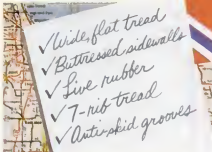 ✓Wide, flat tread
✓Buttressed sidewalls
✓Live rubber
✓7-rib tread
✓Anti-skid grooves